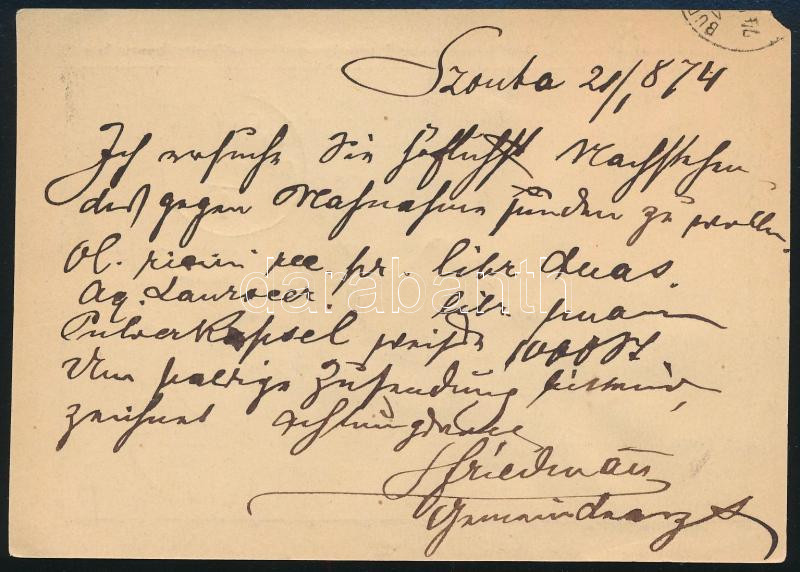 BUD
Szouta 21/8 874
Ich ersuche Sie höflichst Nachstehen-
des gegen Nachnahme senden zu wollen.
Ol. ricini rec pr. libr duas.
Aq. Laurocer. libr unam
Pulverkapsel weiße 1000 St
Um baldige Zusendung bittend,
zeichnet achtungsvoll
Friedmann
Gemeindearzt
darabanth